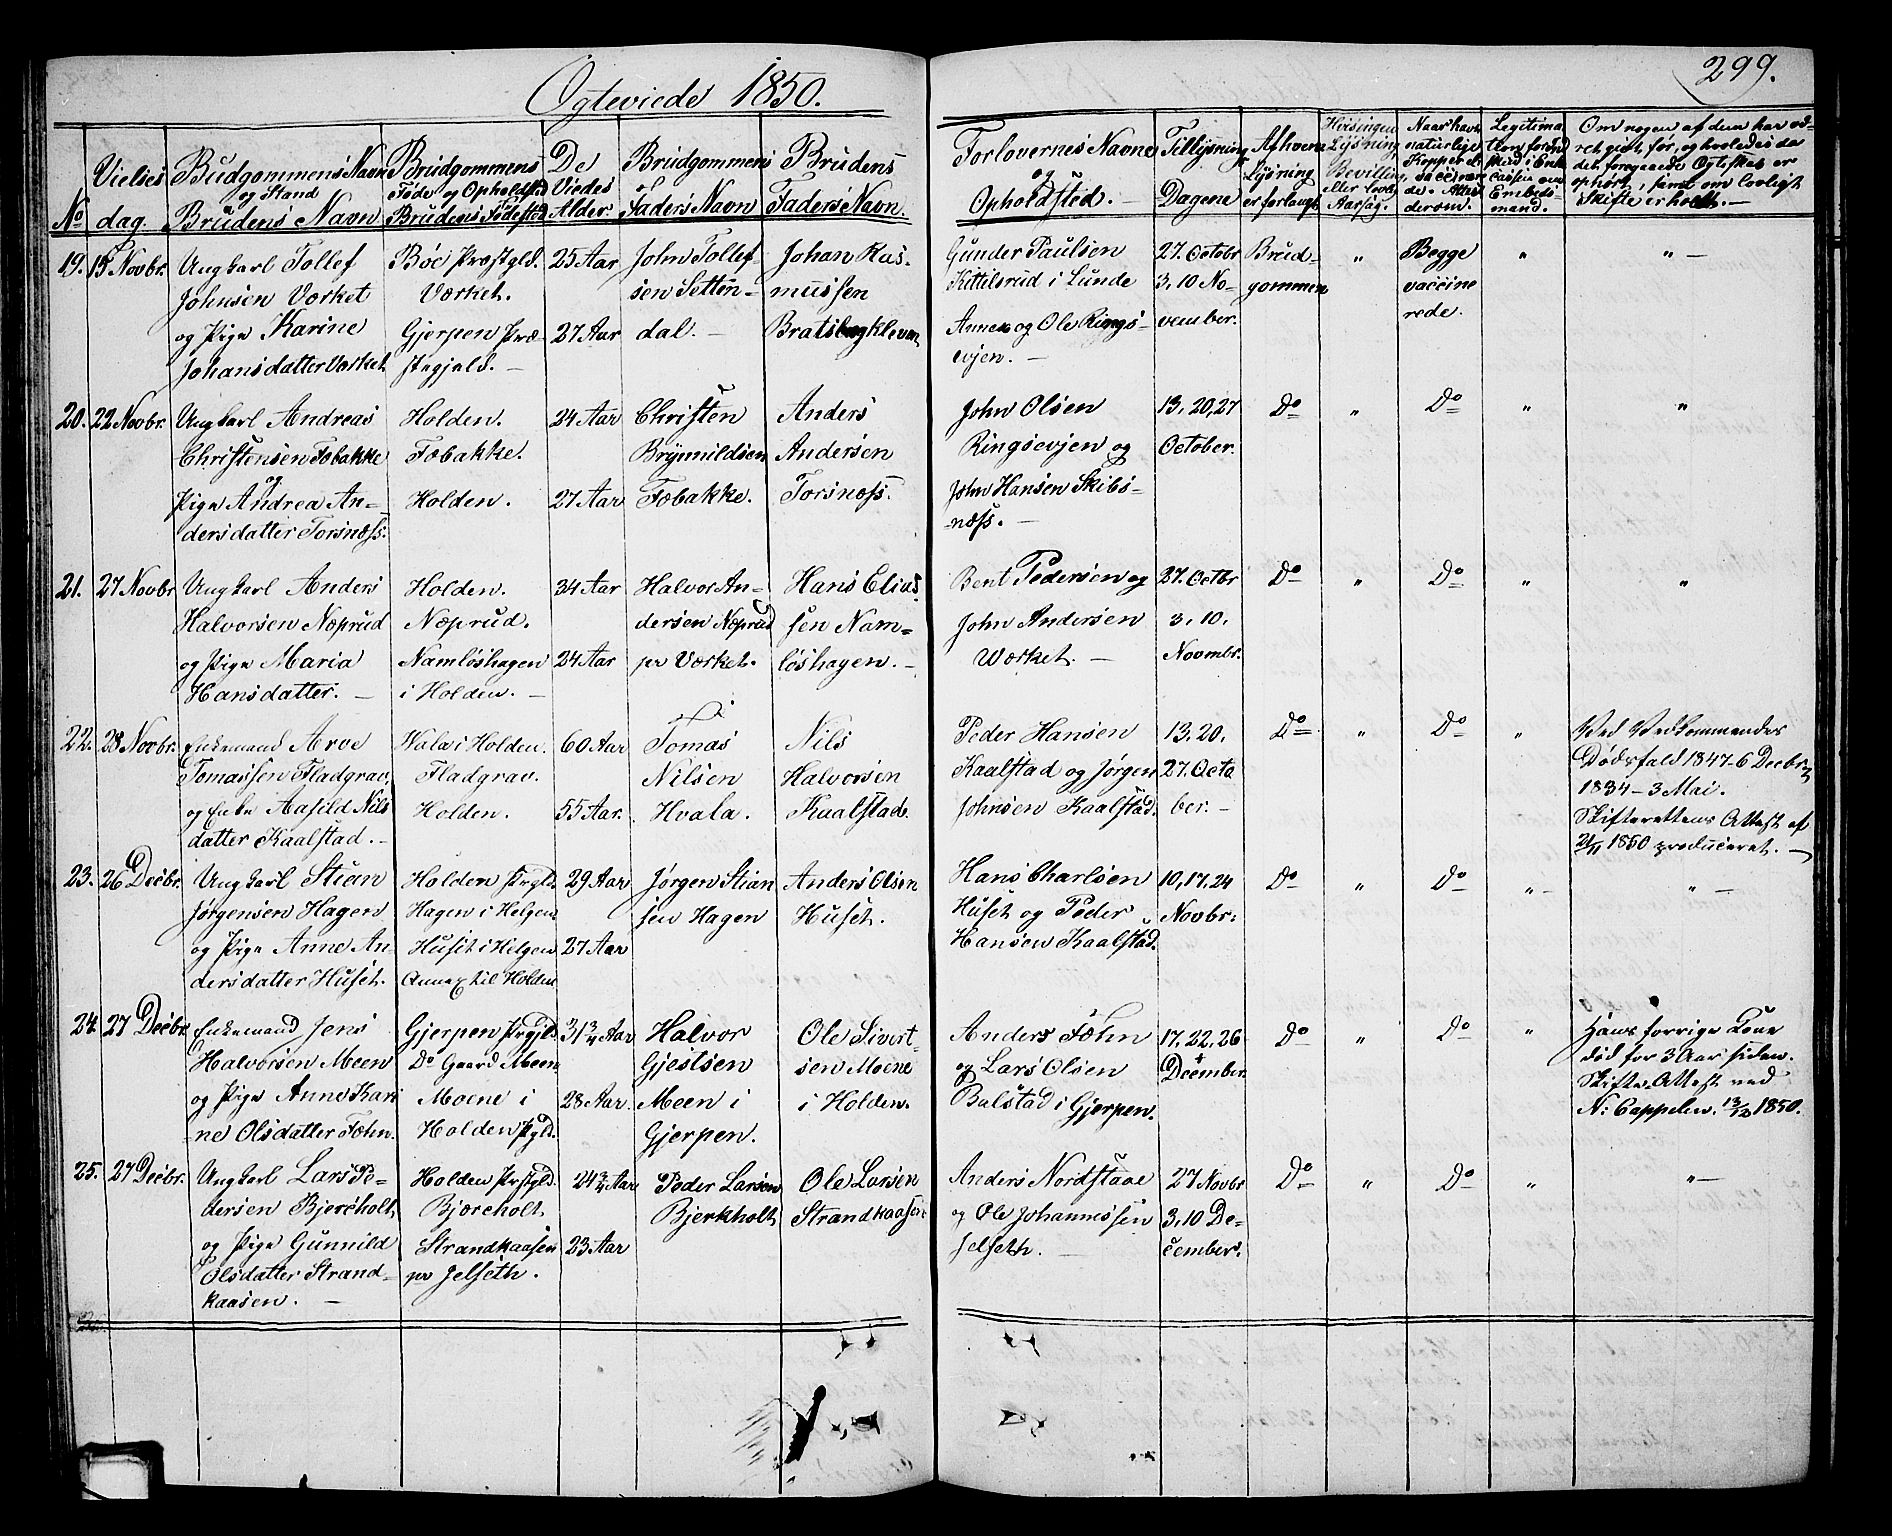 Ogteviede 1850.
299.
No
Vielses
dag.
Budgommens Navn
og Stand
Brudens Navn
Brudgommens
Føde og Opholdsted
Brudens Fødested
De
Viedes
Alder.
Brudgommens
Faders Navn
Brudens
Faders Navn.
Forlovernes Navne
og
Opholdsted.
Tillysnings
Dagene
Af hvem
Lysning
er forlangt.
Lysning
Bevilling
Naar havt
naturlige
Kopper el.
vaccinere
de. Attest
derom.
Legitima
Embeds
mand.
Om nogen af dem har væ-
ret gift før, og hvorledes da
det foregaaende Ægteskab er
ophørt, samt om lovligt
Skifte er holdt. —
19. 15 Novbr.
Ungkarl Tollef
Johnsen Værket
og Pige Karine
Johansdatter Værket.
Bøe Præstgld.
Værket.
Gjerpen Præ-
stegjeld. —
25 Aar
27 Aar
John Tollef-
sen Setten-
dal. —
Johan Ras-
mussen
Bratsbergkleven
Gunder Paulsen
Kittilsrud i Lunde
Annex og Ole Rings-
evjen. —
27. Octobr
3, 10 No-
vember.
Brud-
gommen
"
Begge
vaccine
rede.
"
" —
20. 22 Novbr.
Ungkarl Andreas
Christensen Fæbakke
og
Pige Andrea An-
dersdatter Torsnæss.
Holden.
Fæbakke.
Holden.
24 Aar
27 Aar
Christen
Brynnildsen
Fæbakke.
Anders
Andersen
Torsnæss.
John Olsen
Ringsevjen og
John Hansen Skibs-
næss. —
13, 20, 27
October.
Do
"
Do
"
"
21. 27 Novbr
Ungkarl Anders
Halvorsen Næprud
og Pige Maria
Hansdatter. —
Holden.
Næprud.
Namløshagen
i Holden. —
34 Aar
24 Aar
Halvor An-
dersen Næprud
pr Værket.
Hans Elias-
sen Nam-
løshagen. —
Bent Pedersen og
John Andersen
Værket. —
27. Octbr
3, 10,
Novmbr.
Do
"
Do
"
"
22. 28 Novbr.
Enkemand Arve
Tomassen Fladgrav,
og Enke Aasild Nils
datter Kaalstad. —
Vala i Holden.
Fladgrav.
Holden.
60 Aar
55 Aar.
Tomas
Nilsen
Hvala.
Nils
Halvorsen
Kaalstad.
Peder Hansen
Kaalstad og Jørgen
Johnsen Kaalstad.
13, 20,
27. Octo
ber. —
Do
"
Do
"
Ved Vedkommendes
Dødsfald 1847 6 Decbr,
1834 - 3 Mai.
Skifterettens Attest af
21/11 1850 produceret. —
23. 26 Decbr.
Ungkarl Stian
Jørgensen Hagen
og Pige Anne An-
dersdatter Huset.
Holden Prgld.
Hagen i Helgen
Huset i Helgen
Annex til Holden
29 Aar
27 Aar
Jørgen Stian
sen Hagen
Anders Olsen
Huset.
Hans Charlsen
Huset og Peder
Hansen Kaalstad.
10, 17, 24
Novbr.
Do
"
Do
" —
" —
24. 27 Decbr.
Enkemand Jens
Halvorsen Meen
og Pige Anne Kari
ne Olsdatter Fæhn.
Gjerpen Prgjld.
Do Gaard Meen
Moene i
Holden Pgld.
31 3/4 Aar
28 Aar.
Halvor
Gjestsen
Meen i
Gjerpen.
Ole Sivert-
sen Moene
i Holden.
Anders Fæhn
og Lars Olsen
Bulstad i Gjerpen.
17, 22, 26
December.
Do
"
Do
"
Hans forrige Kone
død for 3 Aar siden.
Skifte Attest ved
N: Cappelen. 13/12 1850.
25. 27 Decbr.
Ungkarl Lars Pe-
dersen Bjerckholt,
og Pige Gunnild
Olsdatter Strand-
kaasen. —
Holden Prstgld.
Bjørcholt.
Strandkaasen
pr Jelseth.
24 3/4 Aar
23 Aar
Peder Larsen
Bjerkholt
Ole Larsen
Strandkaasen
Anders Nordstaae
og Ole Johannessen
Jelseth. —
27 Novbr
3, 10 De-
cember.
Do
"
Do
"
" —